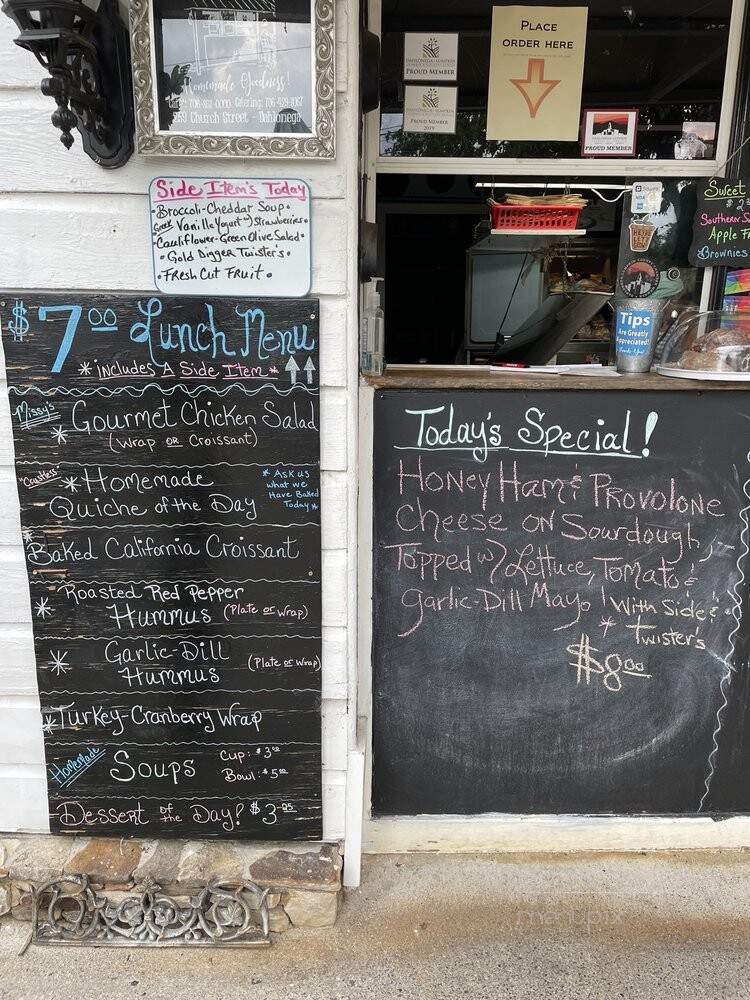 Homemade Goodness!
259 Church Street - Dahlonega
PROUD MEMBER
PROUD MEMBER
2019
PLACE
ORDER HERE
PROUD MEMBER
Side Item's Today
• Broccoli-Cheddar Soup •
• Greek Vanilla Yogurt w/ Strawberries •
• Cauliflower-Green Olive Salad •
• Gold Digger Twister's •
• Fresh Cut Fruit •
$7.00 Lunch Menu
* includes A Side Item *
Missy's
* Gourmet Chicken Salad
(Wrap or Croissant)
"Crustless" * Homemade
Quiche of the Day
* Ask us
what we
Have Baked
Today *
* Baked California Croissant
* Roasted Red Pepper
Hummus (Plate or Wrap)
* Garlic-Dill
Hummus (Plate or Wrap)
* Turkey-Cranberry Wrap
Homemade Soups
Cup:
Bowl:
Dessert of the Day!
Square
Tips
Are Greatly
Appreciated!
Thank You!
Sweet
Southern
Apple
Brownies
Today's Special!
Honey Ham & Provolone
Cheese on Sourdough
Topped w/ Lettuce, Tomato &
Garlic-Dill Mayo! With Side &
* Twister's
$8.00